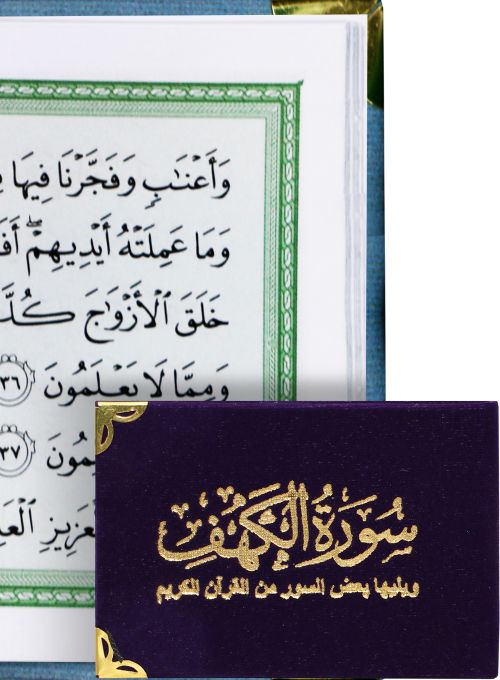 وَأَعْنَٰبٍ وَفَجَّرْنَا فِيهَا
وَمَا عَمِلَتْهُ أَيْدِيهِمْ ۖ
خَلَقَ ٱلْأَزْوَٰجَ
وَمِمَّا لَا يَعْلَمُونَ ٣٦
٣٧
سُورَةُ الكَهْفِ
ويليها بعض السور من القرآن الكريم